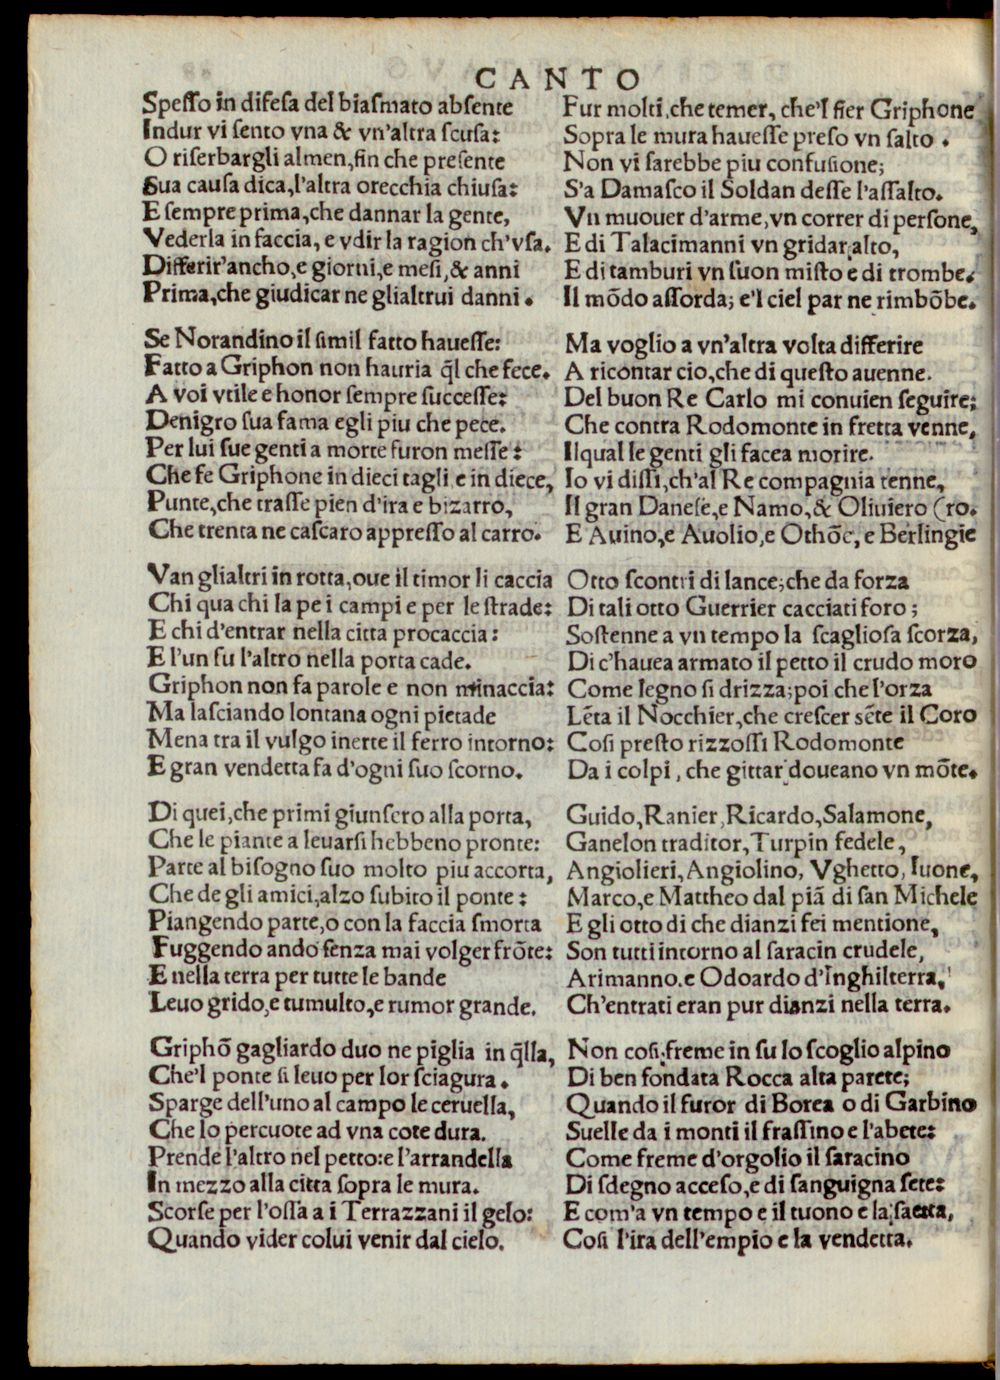 CANTO
Speſſo in difeſa del biaſmato abſente
Indur vi ſento vna & vn'altra ſcuſa:
O riſerbargli almen, fin che preſente
Sua cauſa dica, l'altra orecchia chiuſa:
E ſempre prima, che dannar la gente,
Vederla in faccia, e vdir la ragion ch'vſa.
Differir'ancho, e giorni, e meſi, & anni
Prima, che giudicar ne glialtrui danni.
Se Norandino il ſimil fatto haueſſe:
Fatto a Griphon non hauria q̃l che fece.
A voi vtile e honor ſempre ſucceſſe:
Denigro ſua fama egli piu che pece.
Per lui ſue genti a morte furon meſſe:
Che fe Griphone in dieci tagli e in diece,
Punte, che traſſe pien d'ira e bizarro,
Che trenta ne caſcaro appreſſo al carro.
Van glialtri in rotta, oue il timor li caccia
Chi qua chi la pe i campi e per le ſtrade:
E chi d'entrar nella citta procaccia:
E l'un ſu l'altro nella porta cade.
Griphon non fa parole e non minaccia:
Ma laſciando lontana ogni pietade
Mena tra il vulgo inerte il ferro intorno:
E gran vendetta fa d'ogni ſuo ſcorno.
Di quei, che primi giunſero alla porta,
Che le piante a leuarſi hebbeno pronte:
Parte al biſogno ſuo molto piu accorta,
Che de gli amici, alzo ſubito il ponte:
Piangendo parte, o con la faccia ſmorta
Fuggendo ando ſenza mai volger frõte:
E nella terra per tutte le bande
Leuo grido, e tumulto, e rumor grande.
Griphõ gagliardo duo ne piglia in q̃lla,
Che'l ponte ſi leuo per lor ſciagura.
Sparge dell'uno al campo le ceruella,
Che lo percuote ad vna cote dura.
Prende l'altro nel petto: e l'arrandella
In mezzo alla citta ſopra le mura.
Scorſe per l'oſſa a i Terrazzani il gelo:
Quando vider colui venir dal cielo.
Fur molti, che temer, che'l fier Griphone
Sopra le mura haueſſe preſo vn ſalto.
Non vi ſarebbe piu confuſione;
S'a Damaſco il Soldan deſſe l'aſſalto.
Vn muouer d'arme, vn correr di perſone,
E di Talacimanni vn gridar alto,
E di tamburi vn ſuon miſto e di trombe.
Il mõdo aſſorda; e'l ciel par ne rimbõbe.
Ma voglio a vn'altra volta differire
A ricontar cio, che di queſto auenne.
Del buon Re Carlo mi conuien ſeguire;
Che contra Rodomonte in fretta venne,
Ilqual le genti gli facea morire.
Io vi diſſi, ch'al Re compagnia tenne,
Il gran Daneſe, e Namo, & Oliuiero (ro.
E Auino, e Auolio, e Othõe, e Berlingie
Otto ſcontri di lance; che da forza
Di tali otto Guerrier cacciati foro;
Soſtenne a vn tempo la ſcaglioſa ſcorza,
Di c'hauea armato il petto il crudo moro
Come legno ſi drizza; poi che l'orza
Lẽta il Nocchier, che creſcer sẽte il Coro
Coſi preſto rizzoſſi Rodomonte
Da i colpi, che gittar doueano vn mõte.
Guido, Ranier, Ricardo, Salamone,
Ganelon traditor, Turpin fedele,
Angiolieri, Angiolino, Vghetto, Iuone,
Marco, e Mattheo dal piã di ſan Michele
E gli otto di che dianzi fei mentione,
Son tutti intorno al ſaracin crudele,
Arimanno. e Odoardo d'Inghilterra,
Ch'entrati eran pur dianzi nella terra.
Non coſi freme in ſu lo ſcoglio alpino
Di ben fondata Rocca alta parete;
Quando il furor di Borea o di Garbino
Suelle da i monti il fraſſino e l'abete:
Come freme d'orgolio il ſaracino
Di ſdegno acceſo, e di ſanguigna ſete:
E com'a vn tempo e il tuono e la ſaetta,
Coſi l'ira dell'empio e la vendetta.